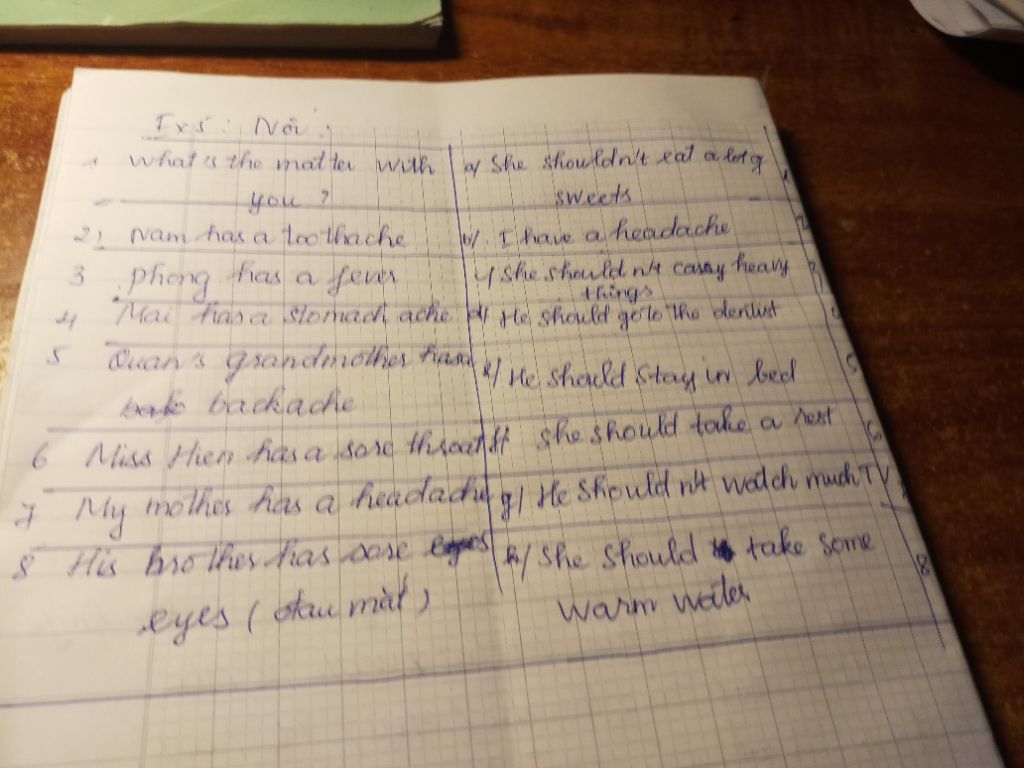 Ex5: Nối:
1 What's the matter with you?
a/ She shouldn't eat a lot of sweets
1
2) Nam has a toothache
b/ I have a headache
2
3 Phong has a fever
c/ She shouldn't carry heavy things
3
4 Mai has a stomach ache
d/ He should go to the dentist
4
5 Quan's grandmother has a backache
e/ He should stay in bed
5
6 Miss Hien has a sore throat
f/ she should take a rest
6
7 My mother has a headache
g/ He shouldn't watch much TV
7
8 His brother has sore eyes (đau mắt)
h/ She should take some warm water
8